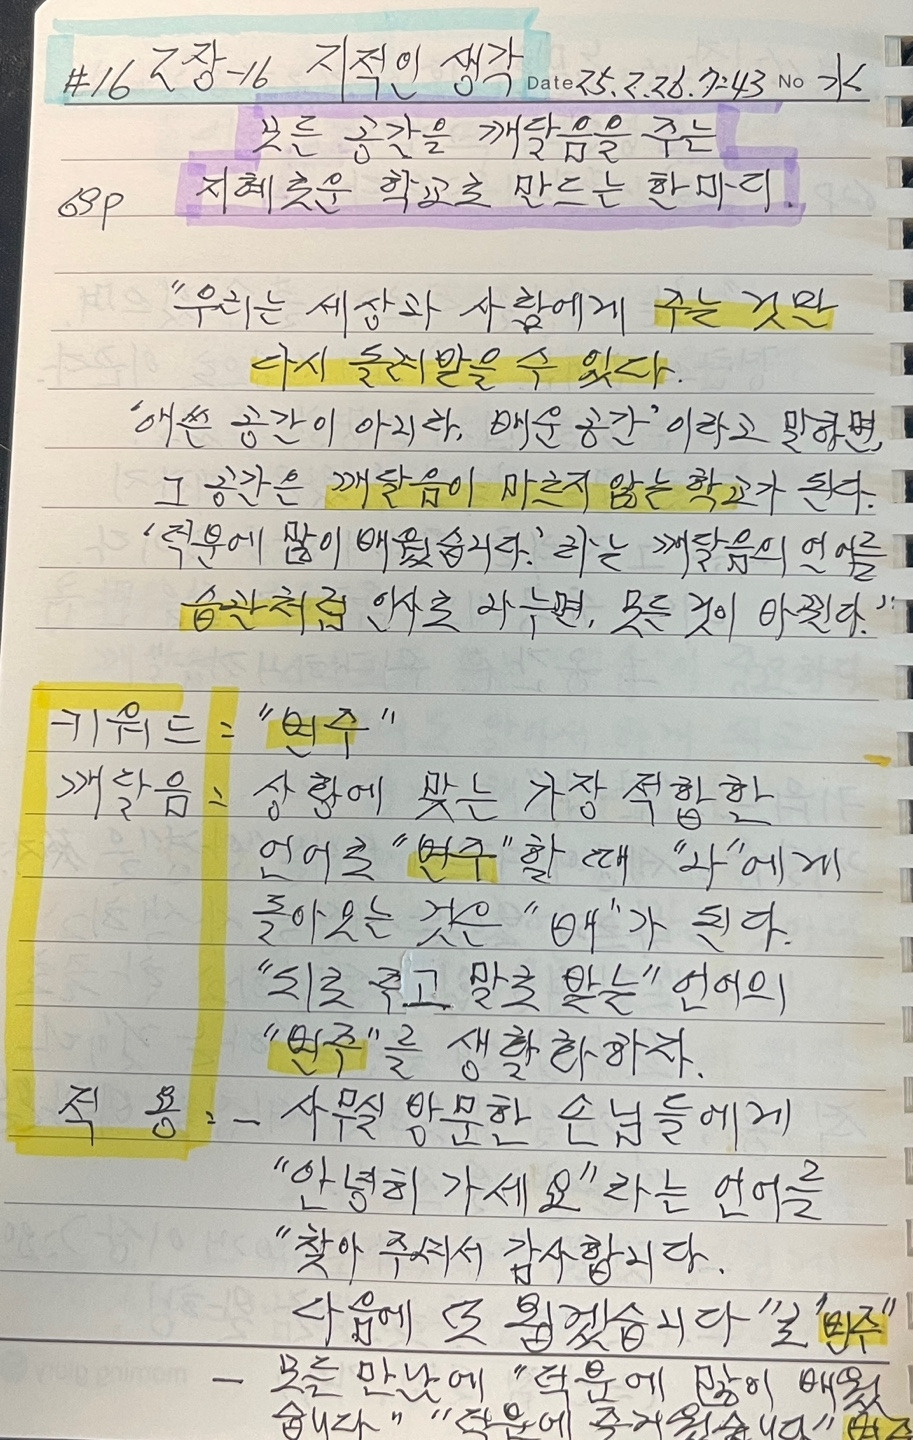 #16 2장-16 지적인 생각 Date 25.2.26. 7:43 No
모든 공간을 깨달음을 주는
지혜로운 학교로 만드는 한마디.
69p
"우리는 세상과 사람에게 주는 것만
다시 돌려받을 수 있다.
'애쓴 공간이 아니라, 배운 공간'이라고 말하면,
그 공간은 깨달음이 마르지 않는 학교가 된다.
'덕분에 많이 배웠습니다.'라는 깨달음의 언어를
습관처럼 인사로 나누면, 모든 것이 바뀐다."
키워드 = "변주"
깨달음 = 상황에 맞는 가장 적합한
언어로 "변주"할 때 "나"에게
돌아오는 것은 "배"가 된다.
"되로 주고 말로 받는" 언어의
"변주"를 생활화하자.
적 용 = - 사무실 방문한 손님들에게
"안녕히 가세요"라는 언어를
"찾아 주셔서 감사합니다.
다음에 또 뵙겠습니다"로 '변주"
- 모든 만남에 "덕분에 많이 배웠
습니다" "덕분에 즐거웠습니다" 변주